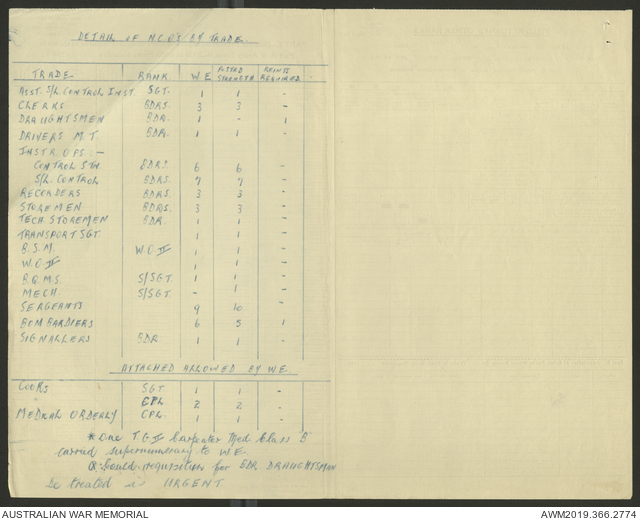 DETAIL OF N.C.O'S BY TRADE.
TRADE RANK W.E POSTED STRENGTH REINFTS REQUIRED
ASST. S/L CONTROL INST. SGT. 1 1 -
CLERKS BDRS. 3 3 -
DRAUGHTSMEN BDR. 1 - 1
DRIVERS M.T. BDR. 1 1 -
INSTR. OPS: -
CONTROL STN. BDRS. 6 6 -
S/L. CONTROL BDRS. 7 7 -
RECORDERS BDRS. 3 3 -
STOREMEN BDRS. 3 3 -
TECH. STOREMEN BDR. 1 1 -
TRANSPORT SGT. 1 1 -
B.S.M. W.O.II 1 1 -
W.O.II 1 1 -
B.Q.M.S. S/SGT. 1 1 -
MECH. S/SGT. - 1 -
SERGEANTS 9 10 -
BOMBARDIERS 6 5 1
SIGNALLERS BDR 1 1 -
ATTACHED ALLOWED BY W.E.
COOKS SGT. 1 1 -
" CPL. 2 2 -
MEDICAL ORDERLY CPL. 1 1 -
* One T.G.II Carpenter Med Class "B"
carried supernumerary to W.E.
Could requisition for BDR. DRAUGHTSMAN
be treated is URGENT.
AUSTRALIAN WAR MEMORIAL
AWM2019.366.2774